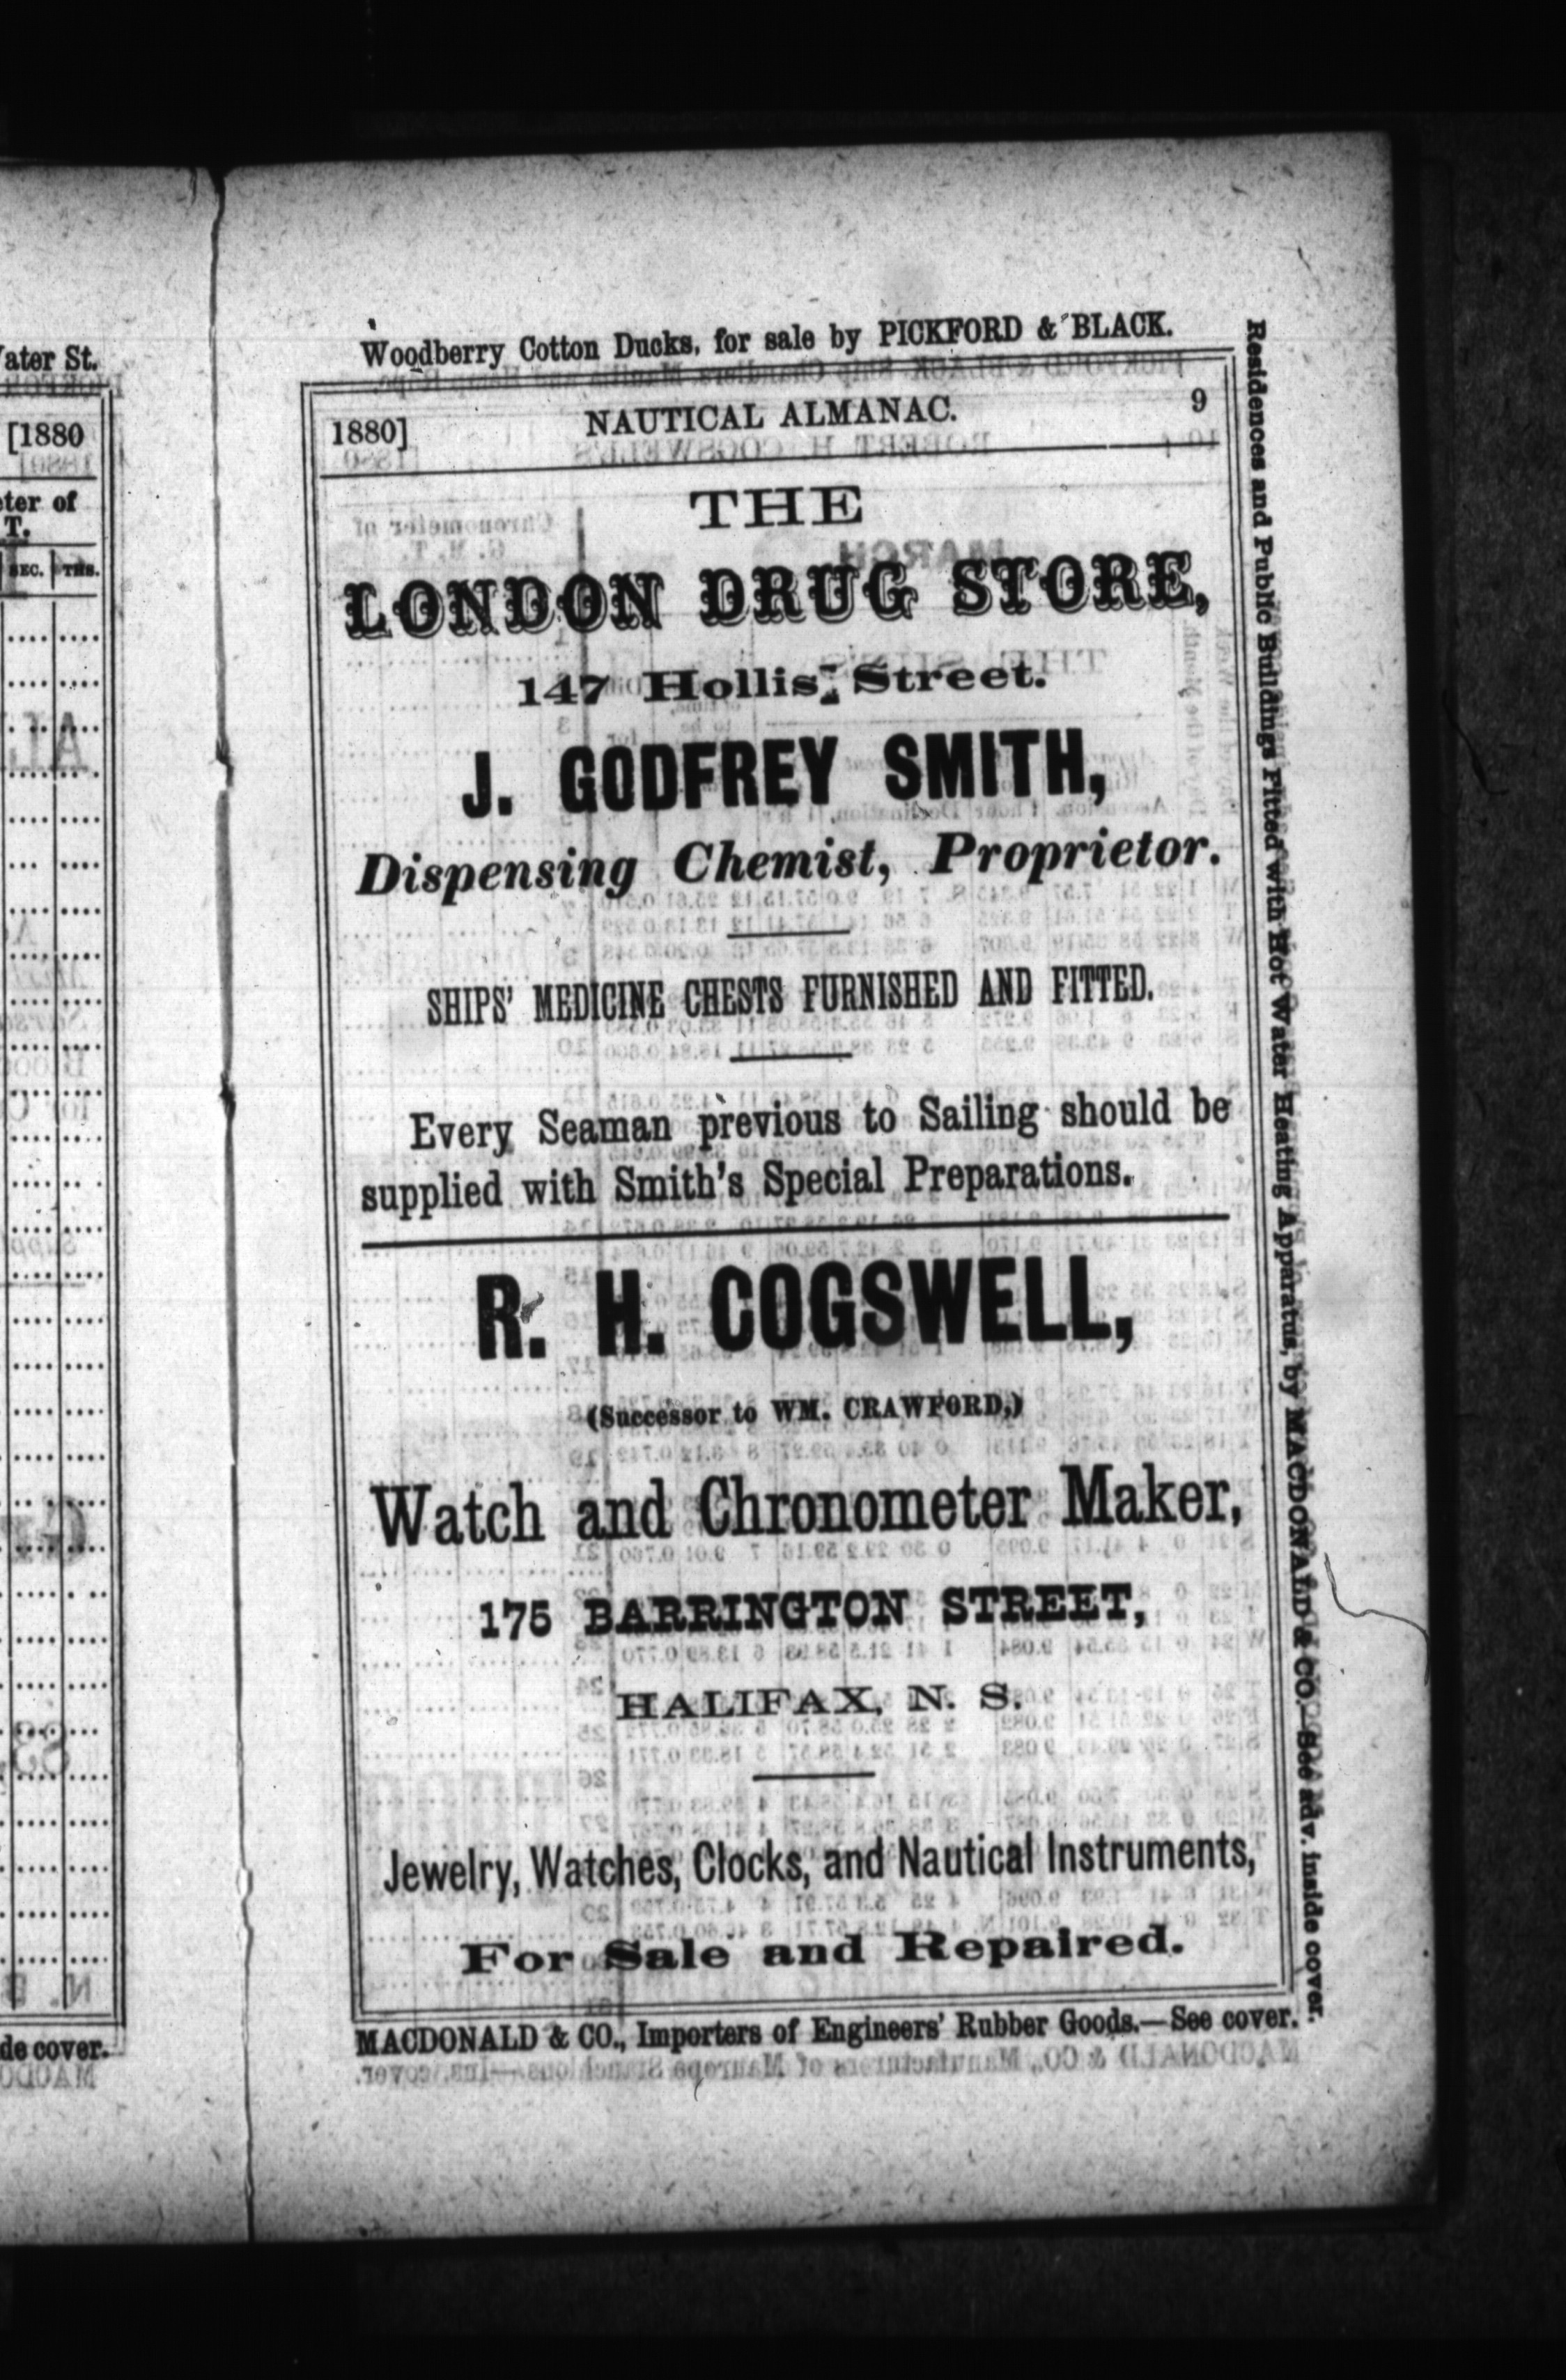 Woodberry Cotton Ducks, for sale by PICKFORD & BLACK.
1880] NAUTICAL ALMANAC. 9
THE
LONDON DRUG STORE,
147 Hollis Street.
J. GODFREY SMITH,
Dispensing Chemist, Proprietor.
SHIPS' MEDICINE CHESTS FURNISHED AND FITTED.
Every Seaman previous to Sailing should be
supplied with Smith's Special Preparations.
R. H. COGSWELL,
(Successor to WM. CRAWFORD,)
Watch and Chronometer Maker,
175 BARRINGTON STREET,
HALIFAX, N. S.
Jewelry, Watches, Clocks, and Nautical Instruments,
For Sale and Repaired.
MACDONALD & CO., Importers of Engineers' Rubber Goods.—See cover.
Residences and Public Buildings Fitted with Hot Water Heating Apparatus, by MACDONALD & CO. See adv. inside cover.
Water St.
[1880
T.
SEC. THS.
de cover.